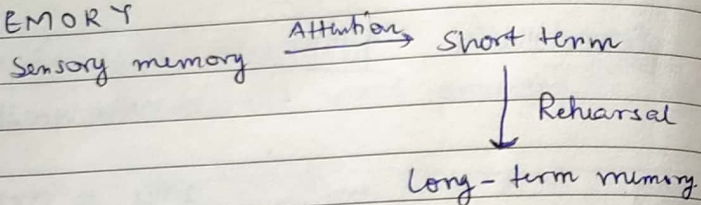 EMORY
Sensory memory Attention Short term
Rehearsal
Long-term memory.